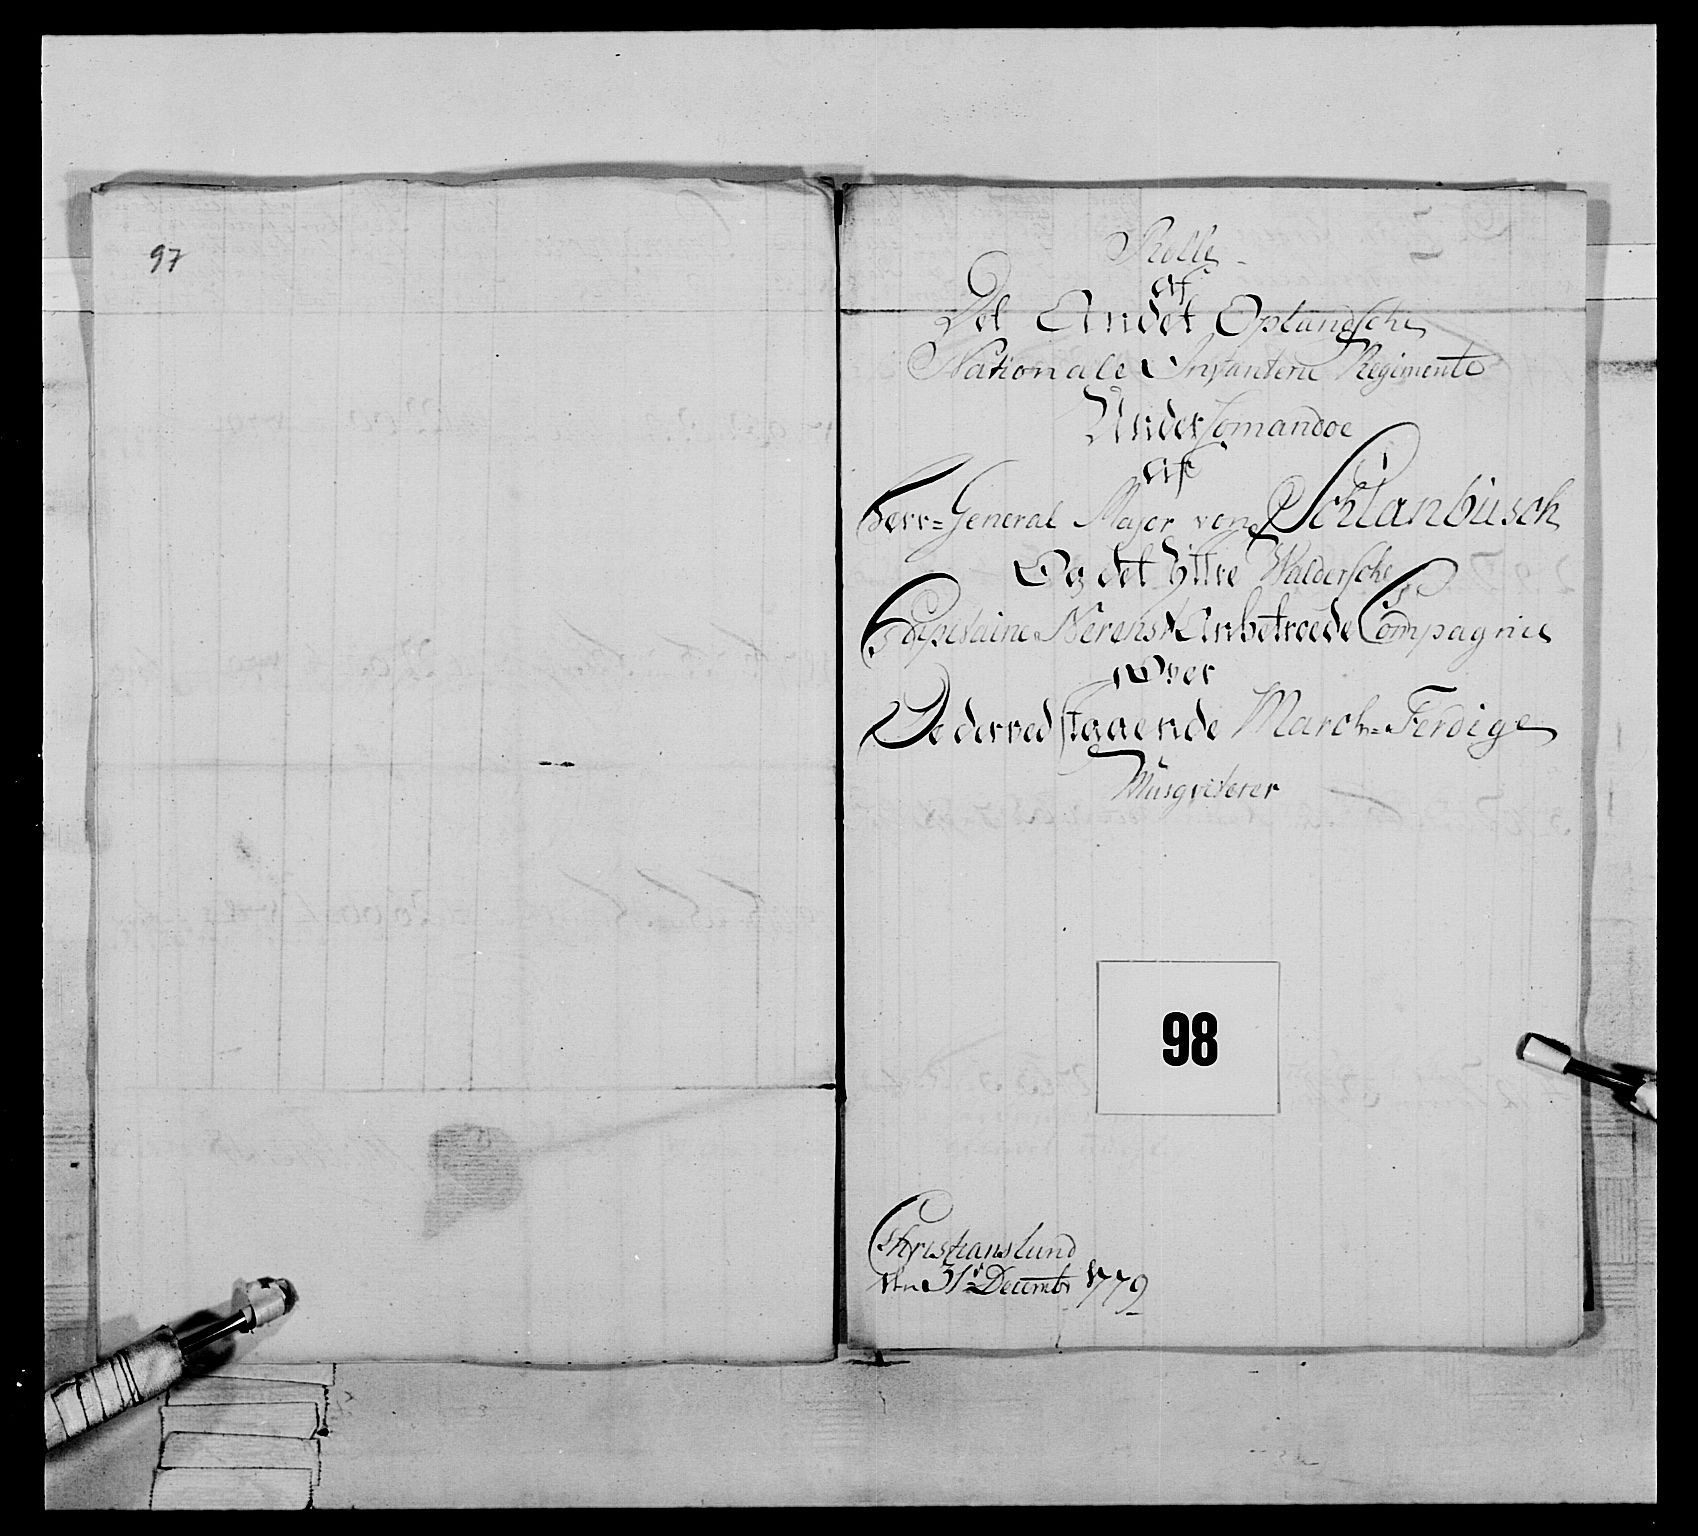 97
Rolle
af
Det Andet Oplandsche
Nationale Infanterie Regimente
Under Comandoe
af
Herr=General Major von Schlanbusch
Og det Yttre Waldersche
Capitaine Nerenst Anbetroede Compagnie
over
De derved staaende March=Ferdige
Musqveterer
98
Christianslund
den 31te Decembr 1779